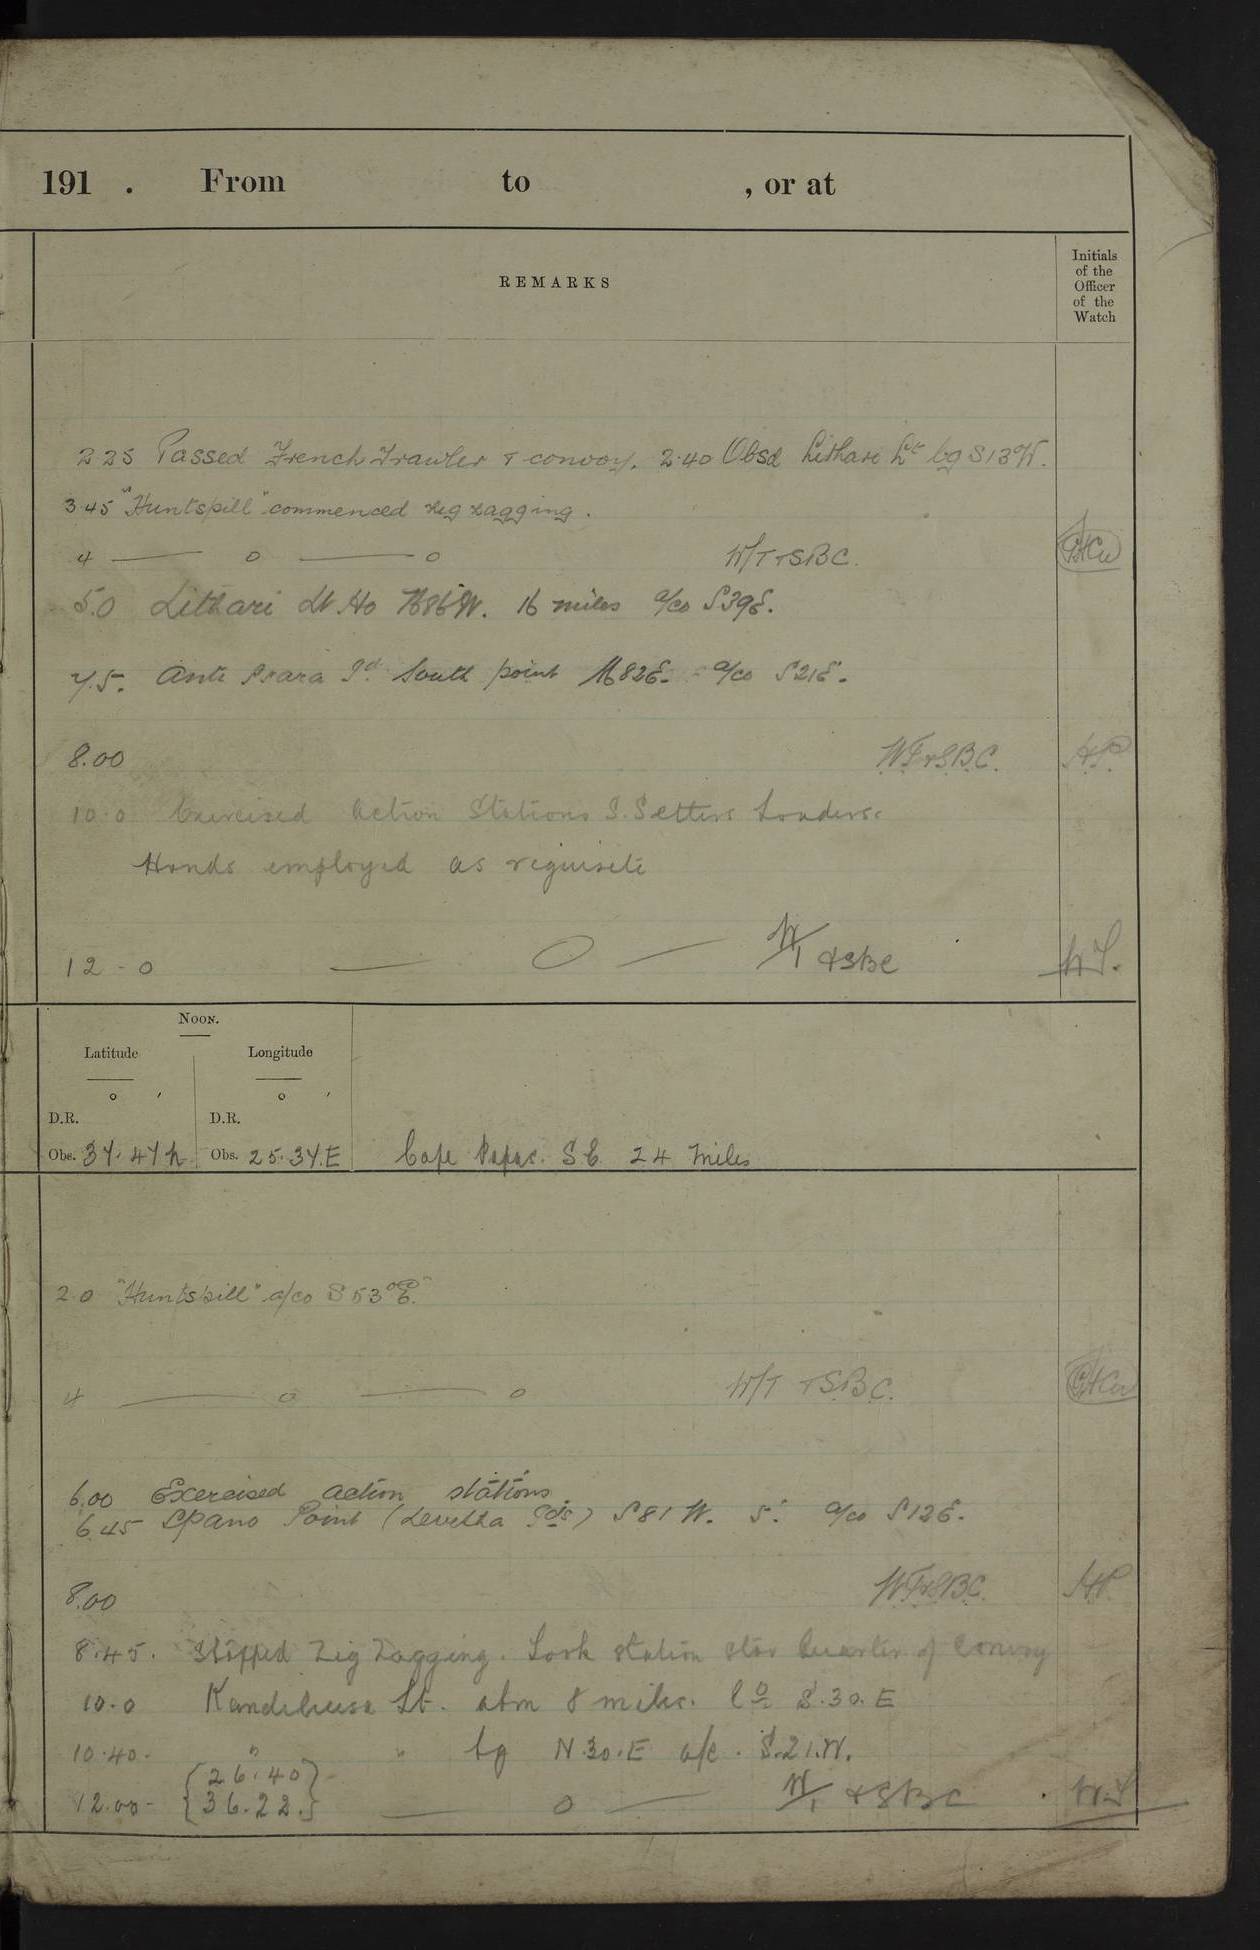 191 . From to , or at
REMARKS
Initials of the Officer of the Watch
2 25 Passed French Trawler & convoy. 2.40 Obsd Lithare Lt bg S13W.
3.45 "Huntspill" commenced zig zagging.
4 — o — o W/T + SBC.
5.0 Lithari Lt Ho N86W. 16 miles a/co S39E.
7.5. Anti Psara Id. South point N82E. a/co S21E.
8.00 WT&SBC. HP.
10.0 Exercised Action Stations S. Setters Loaders.
Hands employed as requisite
12 - 0 — O — W/T &SBC
NOON.
Latitude Longitude
° ′ ° ′
D.R. D.R.
Obs. 37.47N Obs. 25.37.E Cape Papas. SE 24 miles
2.0 "Huntspill" a/co S53°E.
4 — o — o W/T + SBC.
6.00 Exercised action stations
6.45 Spano Point (Levitha Ids) S81W. 5'. a/co S12E.
8.00 WT&SBC. HP.
8.45. Stopped Zig Zagging. Took station star Quarter of Convoy
10.0 Kandeliusa Lt. abm 8 miles. Co S.30.E
10.40. " " bg N.30.E a/c. S.21.W.
12.00 - {26.40 36.22.} — o — W/T &SBC